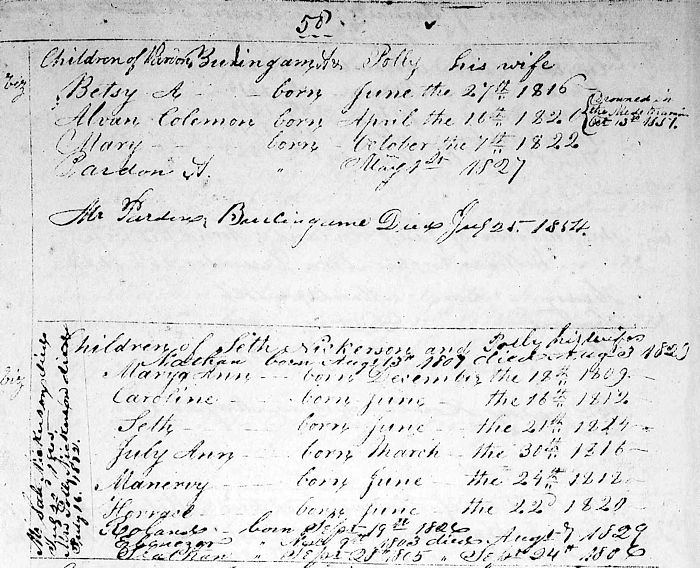 58.
Children of Pardon Burlingam & Polly his wife
viz
Betsy A born June the 27th 1816
Alvan Colemon born April the 16th 182
Drowned in
Oct 15th 1857.
Mary born October the 7th 1822
Pardon A. " May 1827
Mr Pardon Burlingame Died July 25. 1854.
Children of Seth Nickerson and Polly his wife
Nathan born Augt 13th 1807 died Aug 3 1829
viz
Mary Ann born December the 18th 1809
Caroline born June the 16th 1812
Seth born June the 21th 1814
July Ann born March the 30th 1816
Manervy born June the 24th 1818
Horrase born June the 22d 1820
Roland born Sept 19th 1826
Ebenezer " 9th 1803 died Augt 7 1829
Nathan " Sept 28th 1805 " Sept 24th 1806
Mr Seth Nickerson died
Mrs Polly Nickerson died
July 16. 1872.